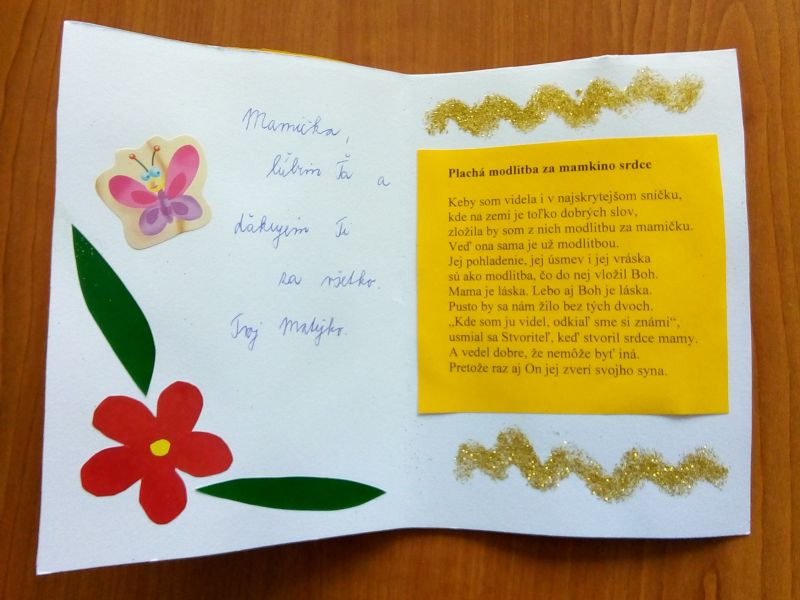 Mamička,
ľúbim Ťa a
ďakujem Ti
za všetko.
Tvoj Matejko.
Plachá modlitba za mamkino srdce
Keby som videla i v najskrytejšom sníčku,
kde na zemi je toľko dobrých slov,
zložila by som z nich modlitbu za mamičku.
Veď ona sama je už modlitbou.
Jej pohladenie, jej úsmev i jej vráska
sú ako modlitba, čo do nej vložil Boh.
Mama je láska. Lebo aj Boh je láska.
Pusto by sa nám žilo bez tých dvoch.
„Kde som ju videl, odkiaľ sme si známi“,
usmial sa Stvoriteľ, keď stvoril srdce mamy.
A vedel dobre, že nemôže byť iná.
Pretože raz aj On jej zverí svojho syna.